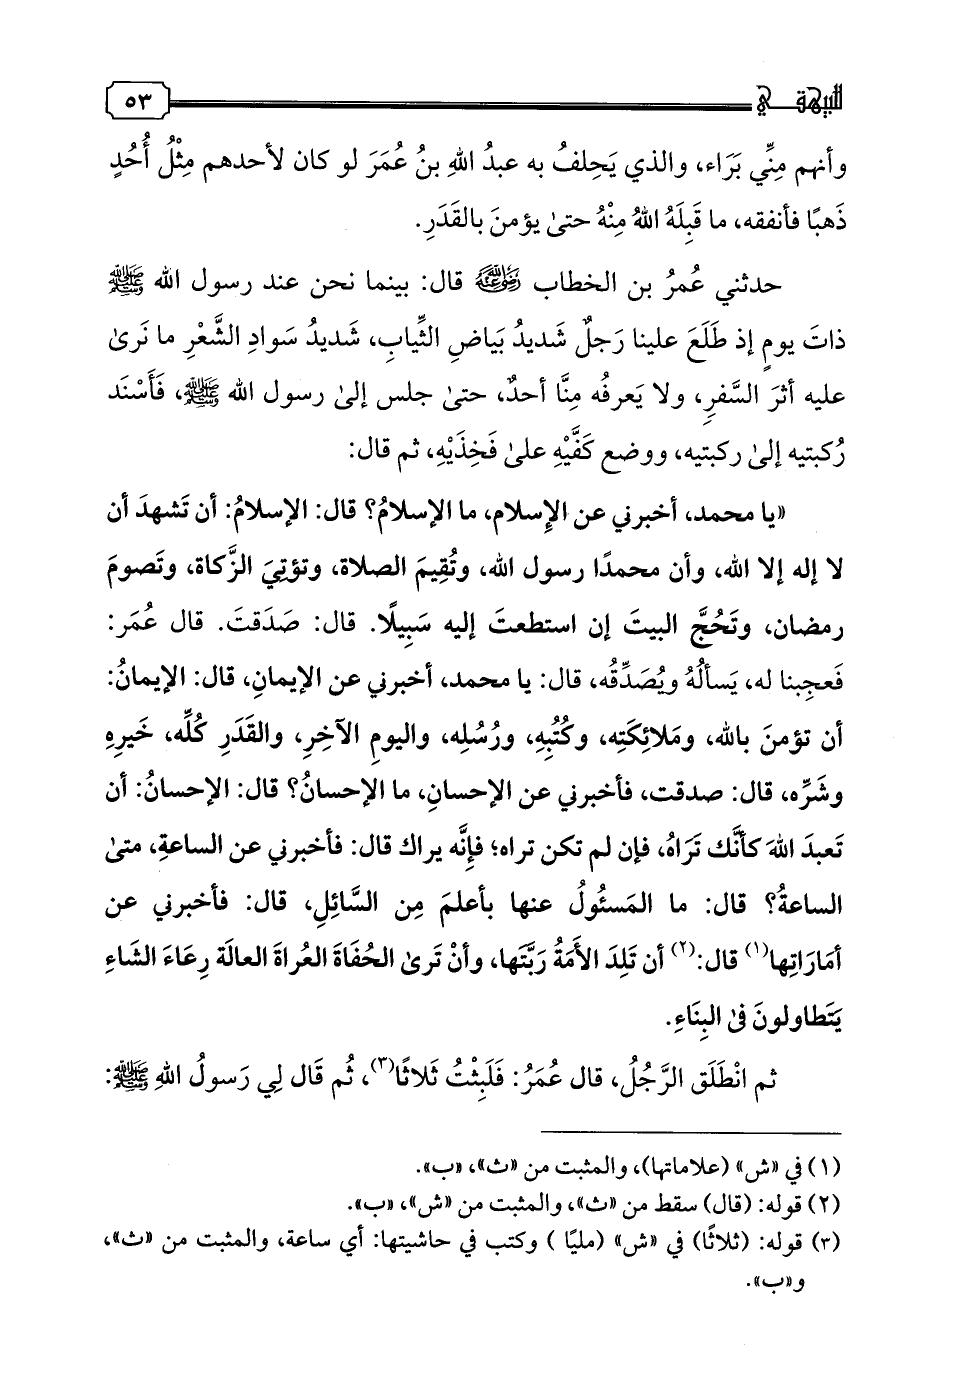 للبيهقي ٥٣
وأنهم مِنِّي بَرَاء، والذي يَحلفُ به عبدُ اللهِ بنُ عُمَرَ لو كان لأحدهم مِثْلُ أُحُدٍ
ذَهبًا فأنفقه، ما قَبِلَهُ اللهُ مِنْهُ حتىٰ يؤمنَ بالقَدَرِ.
حدثني عُمرُ بن الخطاب رضي الله عنه قال: بينما نحن عند رسول الله ﷺ
ذاتَ يومٍ إذ طَلَعَ علينا رَجلٌ شَديدُ بَياضِ الثِّيابِ، شَديدُ سَوادِ الشَّعْرِ ما نَرىٰ
عليه أثرَ السَّفرِ، ولا يَعرفُه مِنَّا أحدٌ، حتىٰ جلس إلىٰ رسول الله ﷺ، فَأَسْنَد
رُكبتيه إلىٰ ركبتيه، ووضع كَفَّيْهِ علىٰ فَخِذَيْهِ، ثم قال:
«يا محمد، أخبرني عن الإِسلام، ما الإسلامُ؟ قال: الإسلامُ: أن تَشهدَ أن
لا إله إلا الله، وأن محمدًا رسول الله، وتُقِيمَ الصلاة، وتؤتِيَ الزَّكاة، وتَصومَ
رمضان، وتَحُجَّ البيتَ إن استطعتَ إليه سَبِيلًا. قال: صَدَقتَ. قال عُمَر:
فَعجِبنا له، يَسألُهُ ويُصَدِّقُه، قال: يا محمد، أخبرني عن الإيمانِ، قال: الإيمانُ:
أن تؤمنَ بالله، ومَلائِكَتِه، وكُتُبِهِ، ورُسُلِه، واليومِ الآخِرِ، والقَدَرِ كُلِّه، خَيرِهِ
وشَرِّه، قال: صدقت، فأخبرني عن الإحسانِ، ما الإحسانُ؟ قال: الإحسانُ: أن
تَعبدَ اللهَ كأنَّك تَرَاهُ، فإن لم تكن تراه؛ فإِنَّه يراك قال: فأخبرني عن الساعةِ، متىٰ
الساعةُ؟ قال: ما المَسئُولُ عنها بأعلمَ مِن السَّائِلِ، قال: فأخبرني عن
أمَارَاتِها(١) قال:(٢) أن تَلِدَ الأمَةُ رَبَّتَها، وأنْ تَرىٰ الحُفَاةَ العُراةَ العالَة رِعَاءَ الشَاءِ
يَتَطاولونَ فىٰ البِنَاءِ.
ثم انْطَلَق الرَّجُلُ، قال عُمَرُ: فَلَبِثْتُ ثَلاثًا(٣)، ثُم قَال لِي رَسولُ اللهِ ﷺ:
(١) في «ش» (علاماتها)، والمثبت من «ث»، «ب».
(٢) قوله: (قال) سقط من «ث»، والمثبت من «ش»، «ب».
(٣) قوله: (ثلاثًا) في «ش» (مليًا ) وكتب في حاشيتها: أي ساعة، والمثبت من «ث»،
و«ب».